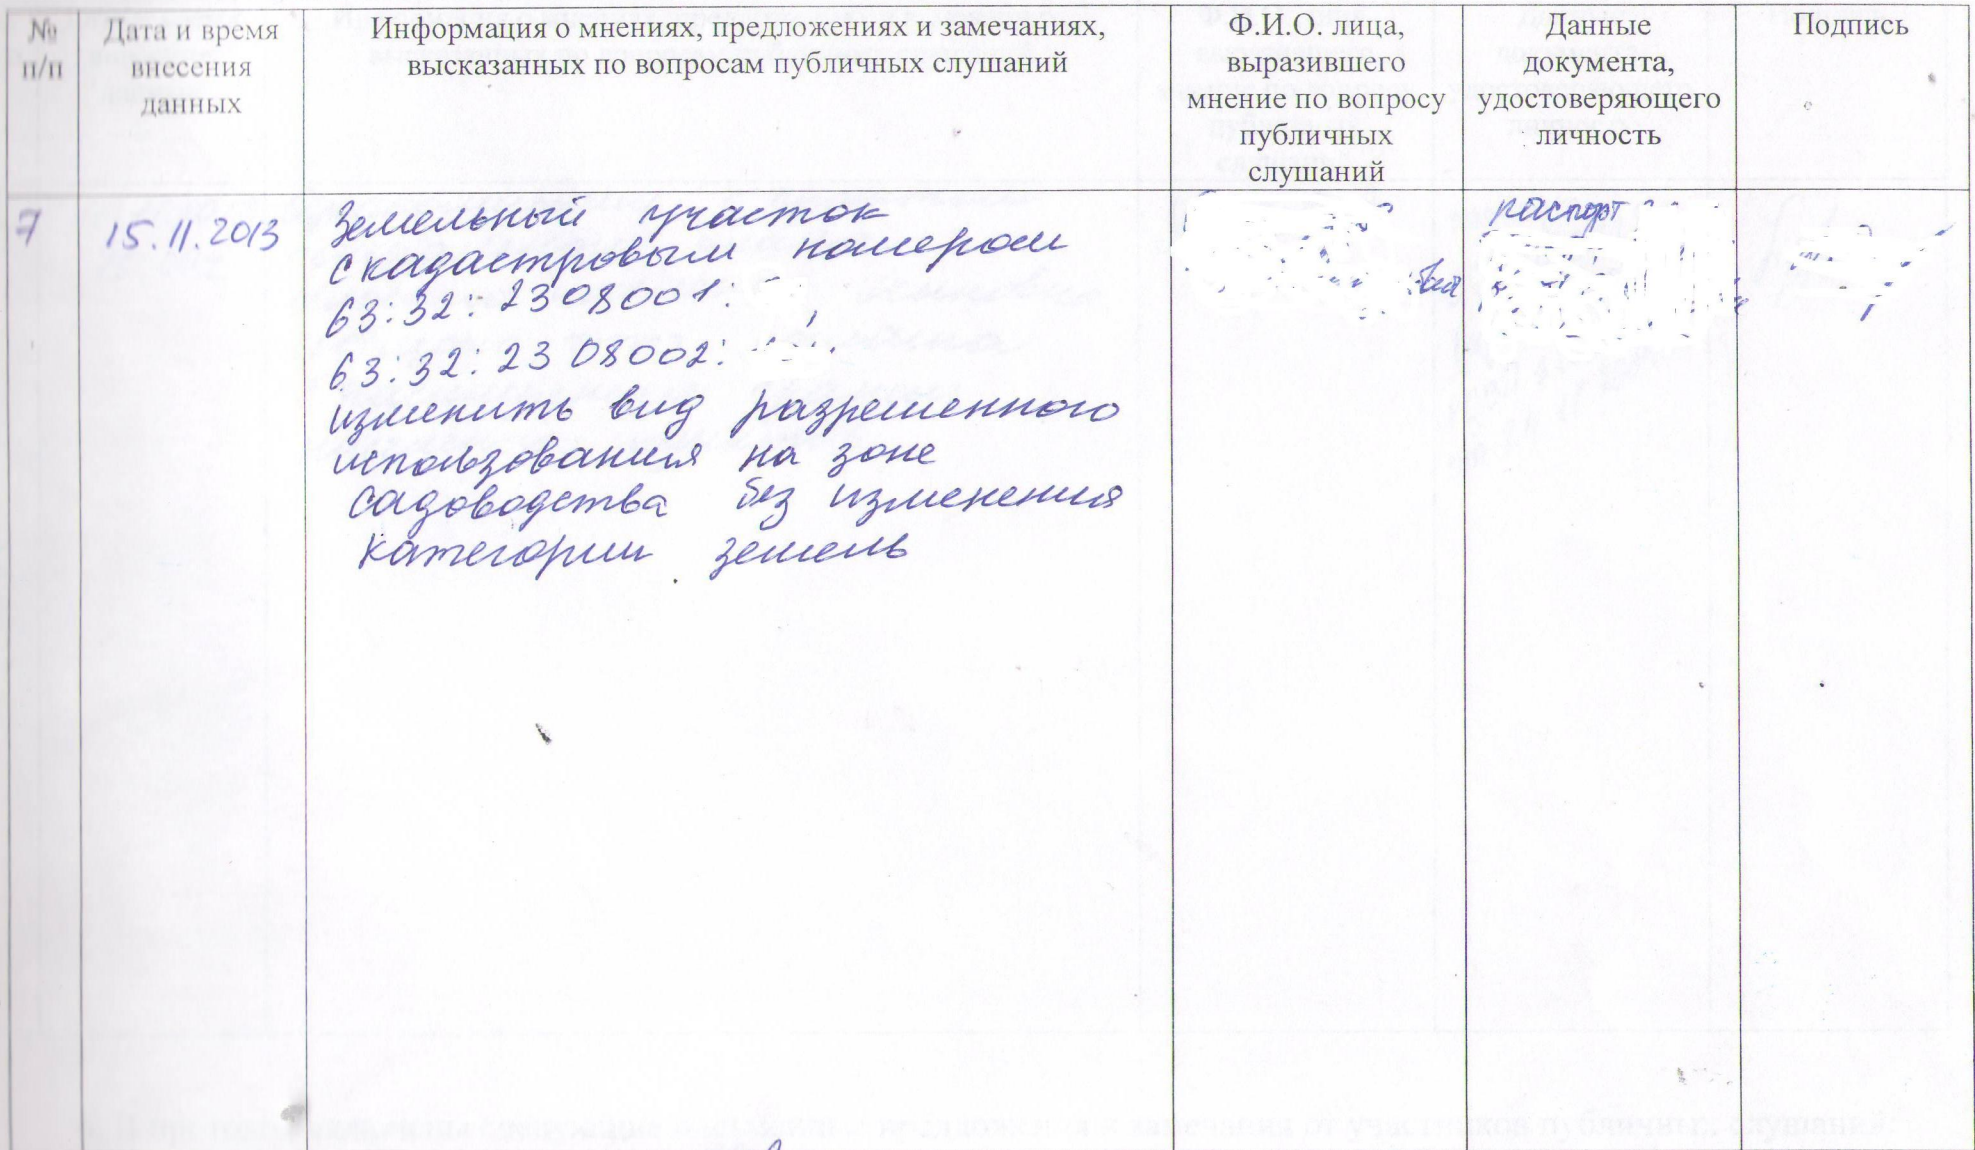 № п/п
Дата и время
внесения
данных
Информация о мнениях, предложениях и замечаниях,
высказанных по вопросам публичных слушаний
Ф.И.О. лица,
выразившего
мнение по вопросу
публичных
слушаний
Данные
документа,
удостоверяющего
личность
Подпись
7
15.11.2013
Земельный участок
с кадастровым номером
63:32:2308001:
63:32:2308002:
изменить вид разрешенного
использования на зоне
садоводства без изменения
категории земель
паспорт